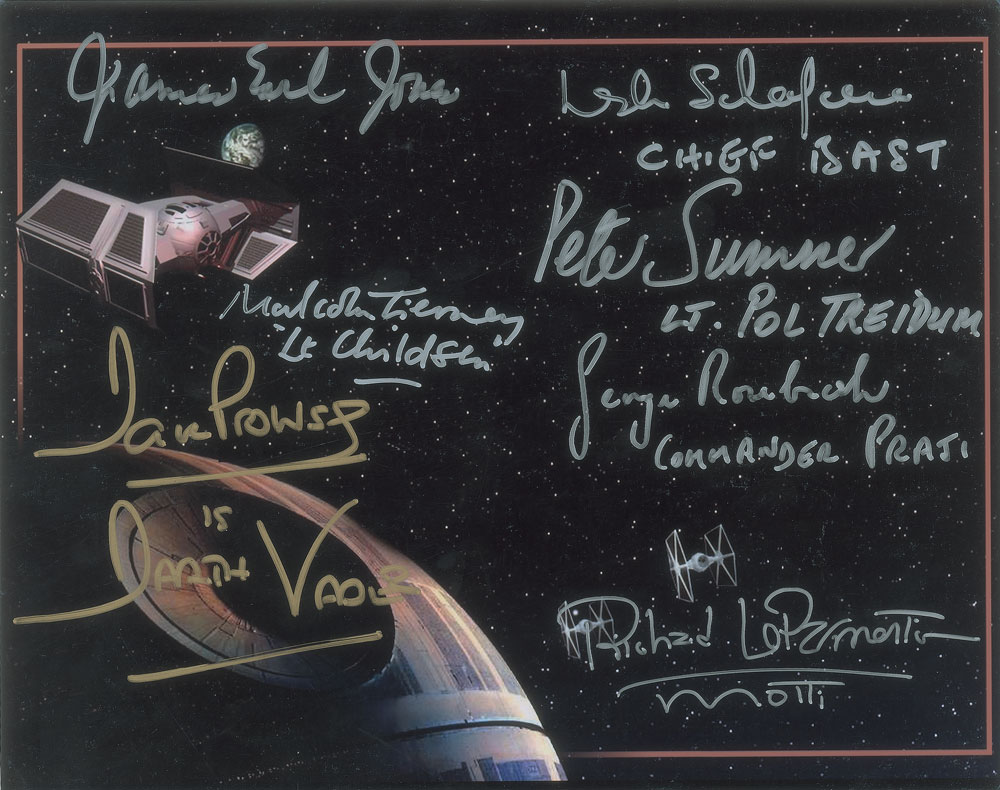 James Earl Jones
Leslie Schofield
CHIEF BAST
Peter Sumner
LT. POL TREIDUM
Malcolm Tierney
"Lt Childsen"
Dave PROWSE
IS
DARTH VADER
George Roubicek
COMMANDER PRAJI
Richard LeParmentier
MOTTI